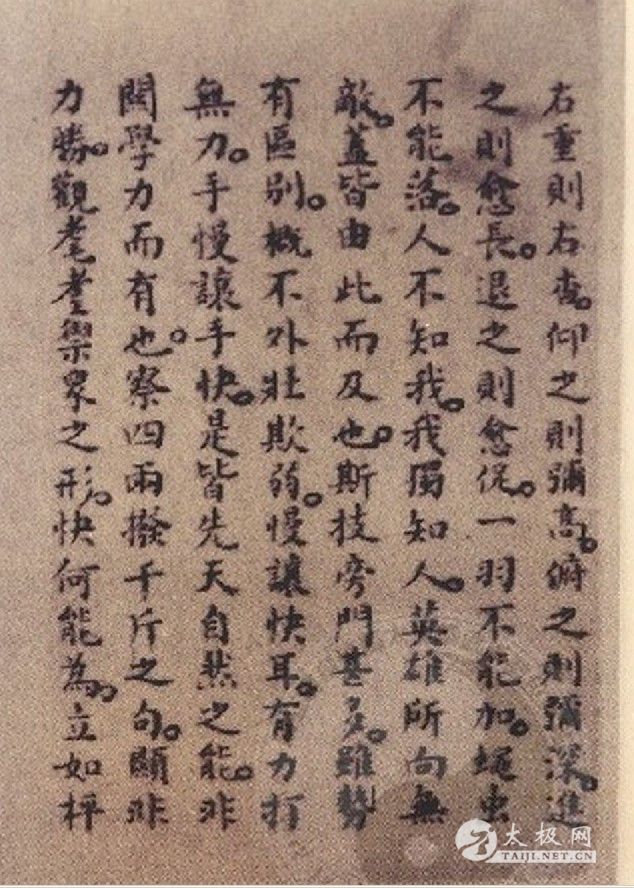 右重則右杳。仰之則彌高。俯之則彌深。進
之則愈長。退之則愈促。一羽不能加。蠅虫
不能落。人不知我。我獨知人。英雄所向無
敵。蓋皆由此而及也。斯技旁門甚多。雖勢
有區別。概不外壯欺弱。慢讓快耳。有力打
無力。手慢讓手快。是皆先天自然之能。非
関學力而有也。察四兩撥千斤之句。顯非
力勝。觀耄耋禦眾之形。快何能為。立如枰
太极网
TAIJI.NET.CN